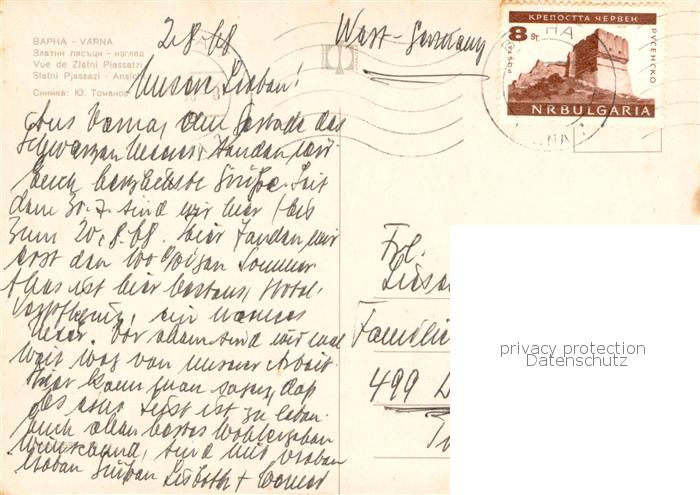 2.8.68
West-Germany
ВАРНА - VARNA
Златни пясъци - изглед
Vue de Zlatni Piassatzi
Slatni Pjassazi - Ansicht
Снимка: Ю. Томанов
КРЕПОСТТА ЧЕРВЕН
8 ST.
РУСЕНСКО
NRBULGARIA
Unsere Lieben!
Aus Varna, dem Gestade des
Schwarzen Meeres, senden wir
Euch herzlichste Grüße. Seit
dem 30.7. sind wir hier (bis
zum 20.8.68. Hier fanden wir
erst den 100%igen Sommer
Alles ist hier bestens, Hotel,
Verpflegung, ein warmes
Meer. Vor allem sind wir mal
weit weg von unserer Arbeit.
Hier kann man sagen, daß
es eine Lust ist zu leben.
Euch allen bestes Wohlergehen
wünschend, sind mit vielen
lieben Grüßen Lisbeth + Werner
Frl.
Familie
499
privacy protection
Datenschutz